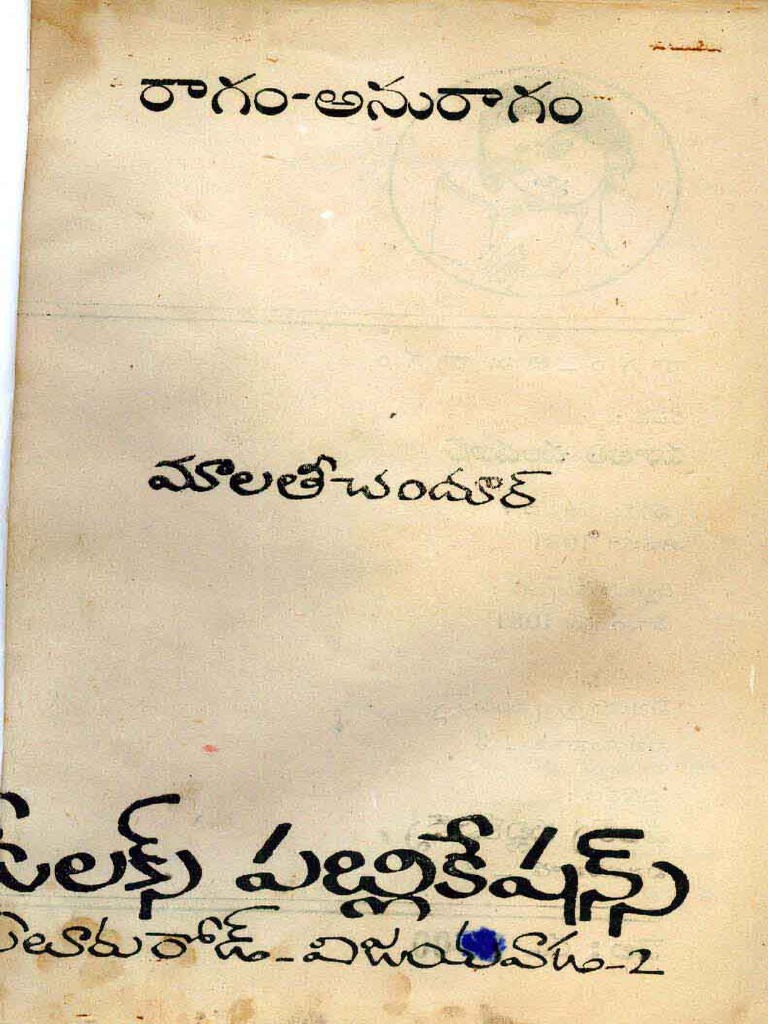 రాగం-అనురాగం
మాలతీచందూర్
డీలక్స్ పబ్లికేషన్స్
ఏలూరురోడ్-విజయవాడ-2